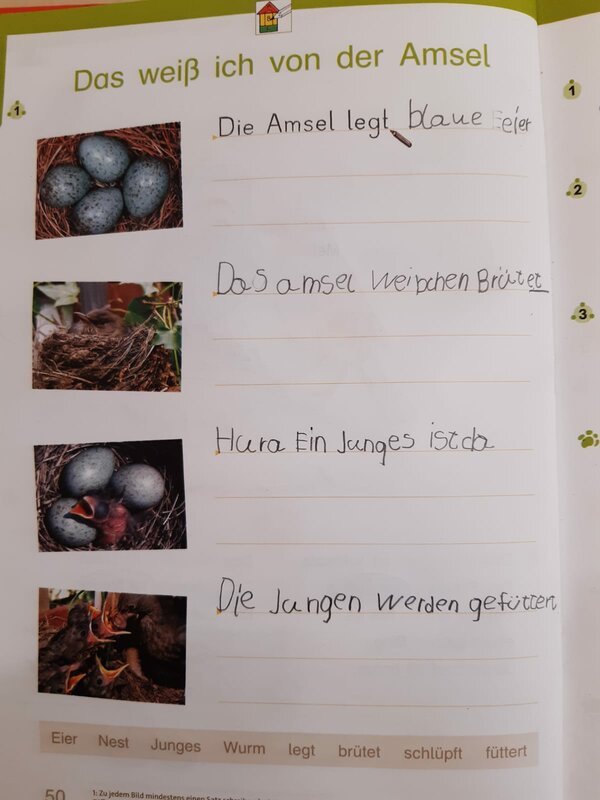 Das weiß ich von der Amsel
1
Die Amsel legt blaue Eeier
Das amsel Weipchen Brütet
Hura Ein Junges ist da
Die Jungen werden gefüttert
Eier Nest Junges Wurm legt brütet schlüpft füttert
50
1: Zu jedem Bild mindestens einen Satz
1
2
3